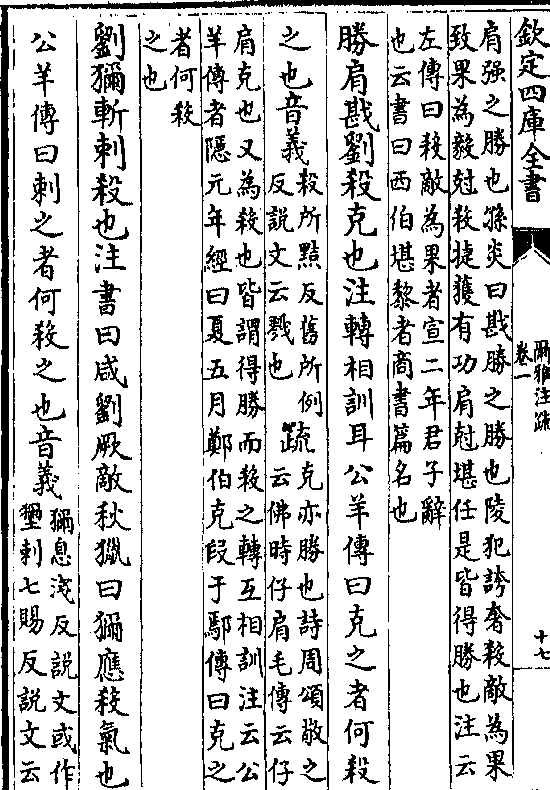 欽定四庫全書
爾雅注疏
卷一
十七
肩强之勝也孫炎曰戡勝之勝也陵犯誇奢殺敵為果
致果為毅尅殺捷獲有功肩尅堪任是皆得勝也注云
左傳曰殺敵為果者宣二年君子辭
也云書曰西伯堪黎者商書篇名也
勝肩戡劉殺克也注轉相訓耳公羊傳曰克之者何殺
之也音義
殺所黠反舊所例
反説文云戮也
疏
克亦勝也詩周頌敬之
云佛時仔肩毛傳云仔
肩克也又為殺也皆謂得勝而殺之轉互相訓注云公
羊傳者隱元年經曰夏五月鄭伯克段于鄢傳曰克之
者何殺
之也
劉獮斬刺殺也注書曰咸劉厥敵秋獵曰獮應殺氣也
公羊傳曰刺之者何殺之也音義
獮息淺反説文或作
壐刺七賜反説文云